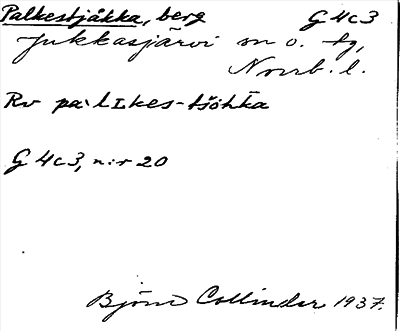 Palkestjåkka, berg G 4c3
Jukkasjärvi sn o. tg,
Norrb. l.
Rv pa·lɪkes-tšöhka
G 4c3, n:r 20
Björn Collinder 1937.